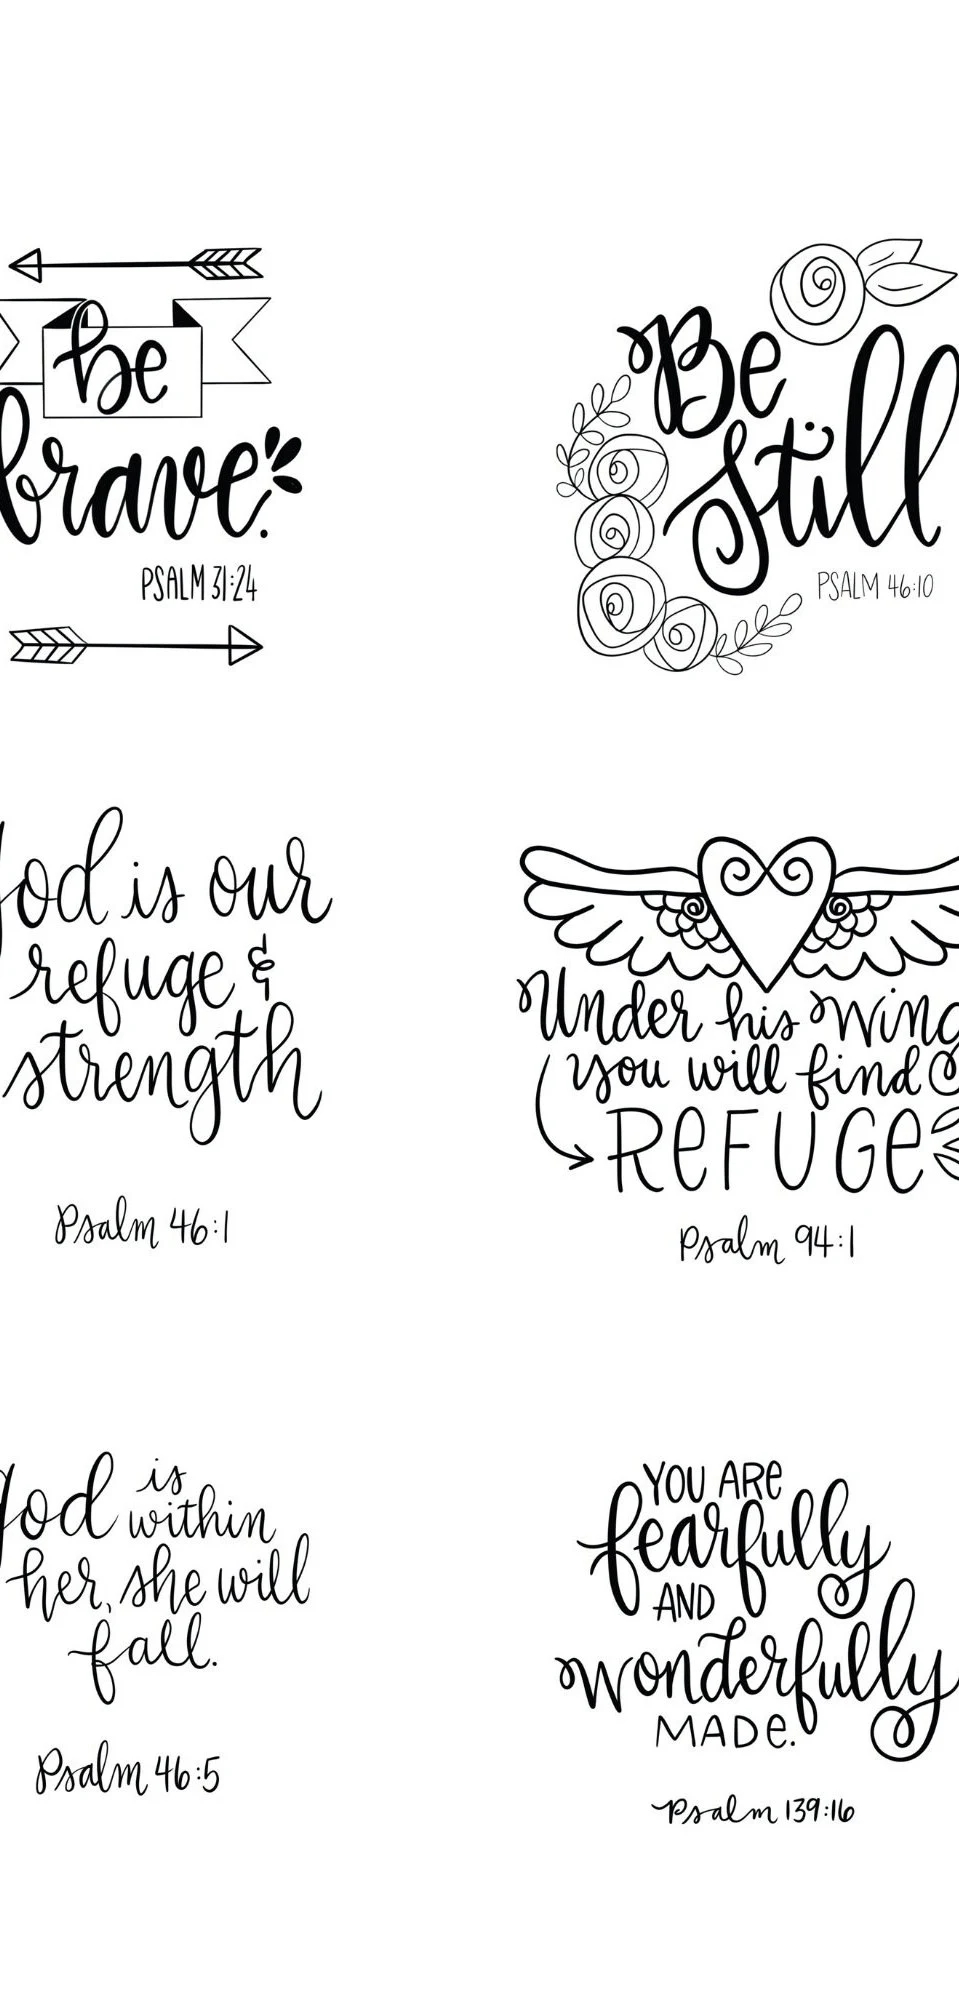 be
brave.
PSALM 31:24
Be
Still
PSALM 46:10
God is our
refuge &
strength
Psalm 46:1
Under his wing
you will find
REFUGE
Psalm 94:1
God is
within
her, she will
fall.
Psalm 46:5
YOU ARE
fearfully
AND
wonderfully
MADE.
Psalm 139:16